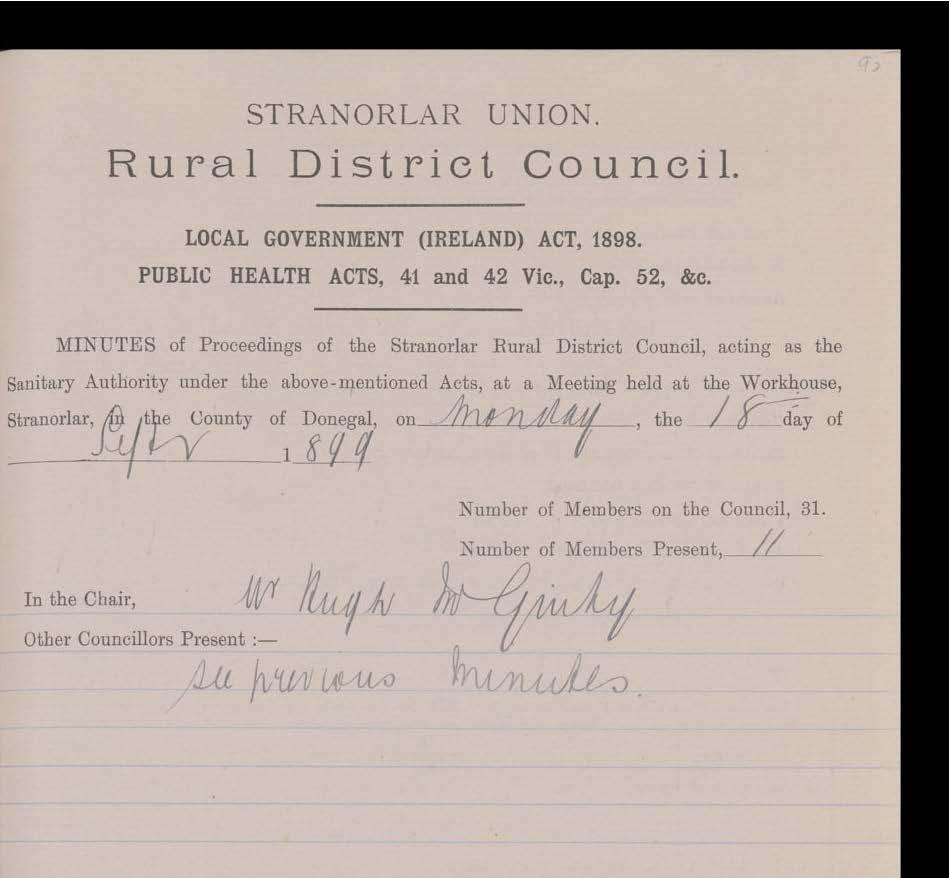 STRANORLAR UNION.
Rural District Council.
LOCAL GOVERNMENT (IRELAND) ACT, 1898.
PUBLIC HEALTH ACTS, 41 and 42 Vic., Cap. 52, &c.
MINUTES of Proceedings of the Stranorlar Rural District Council, acting as the
Sanitary Authority under the above-mentioned Acts, at a Meeting held at the Workhouse,
Stranorlar, in the County of Donegal, on Monday, the 18 day of
Septr 1899
Number of Members on the Council, 31.
Number of Members Present, 11
In the Chair, Mr Hugh McGinty
Other Councillors Present :—
see previous minutes.